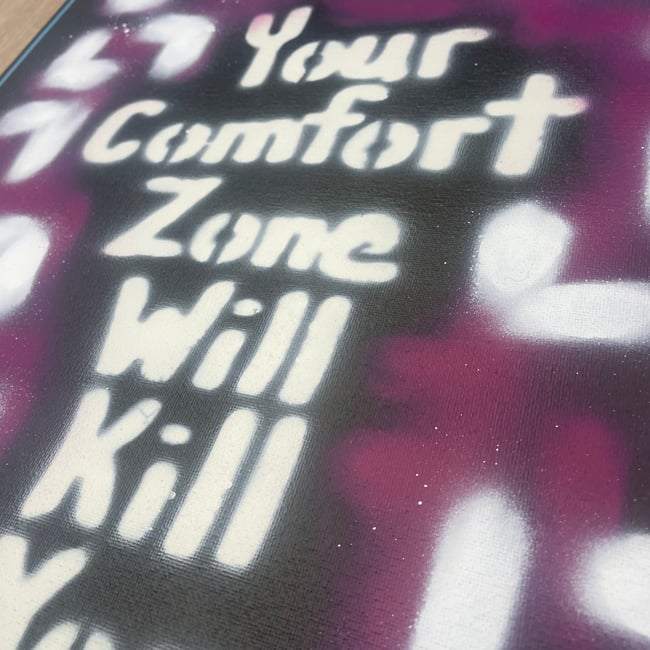 Your
Comfort
Zone
Will
Kill